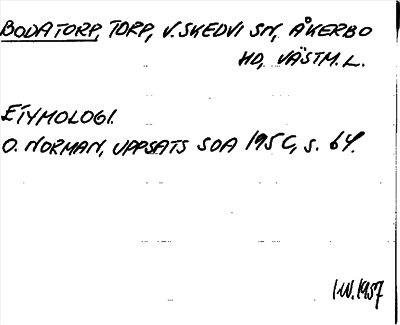 BODATORP, TORP, V. SKEDVI SN, ÅKERBO
HD, VÄSTM. L.
ETYMOLOGI.
O. NORMAN, UPPSATS SOA 195C, S. 64.
1957